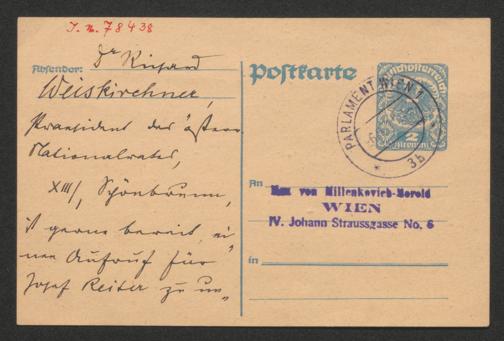 I. N. 78438
Absender: Dr Richard
Weiskirchner,
Praesident des österr.
Nationalrates,
XIII/, Schönbrunn,
ist gerne bereit, ei-
nen Aufruf für
Josef Reiter zu un-
Postkarte
Deutschösterreich
2
PARLAMENT WIEN 1
* 3b
An
Max von Millenkovich-Morold
WIEN
IV. Johann Straussgasse No. 6
in